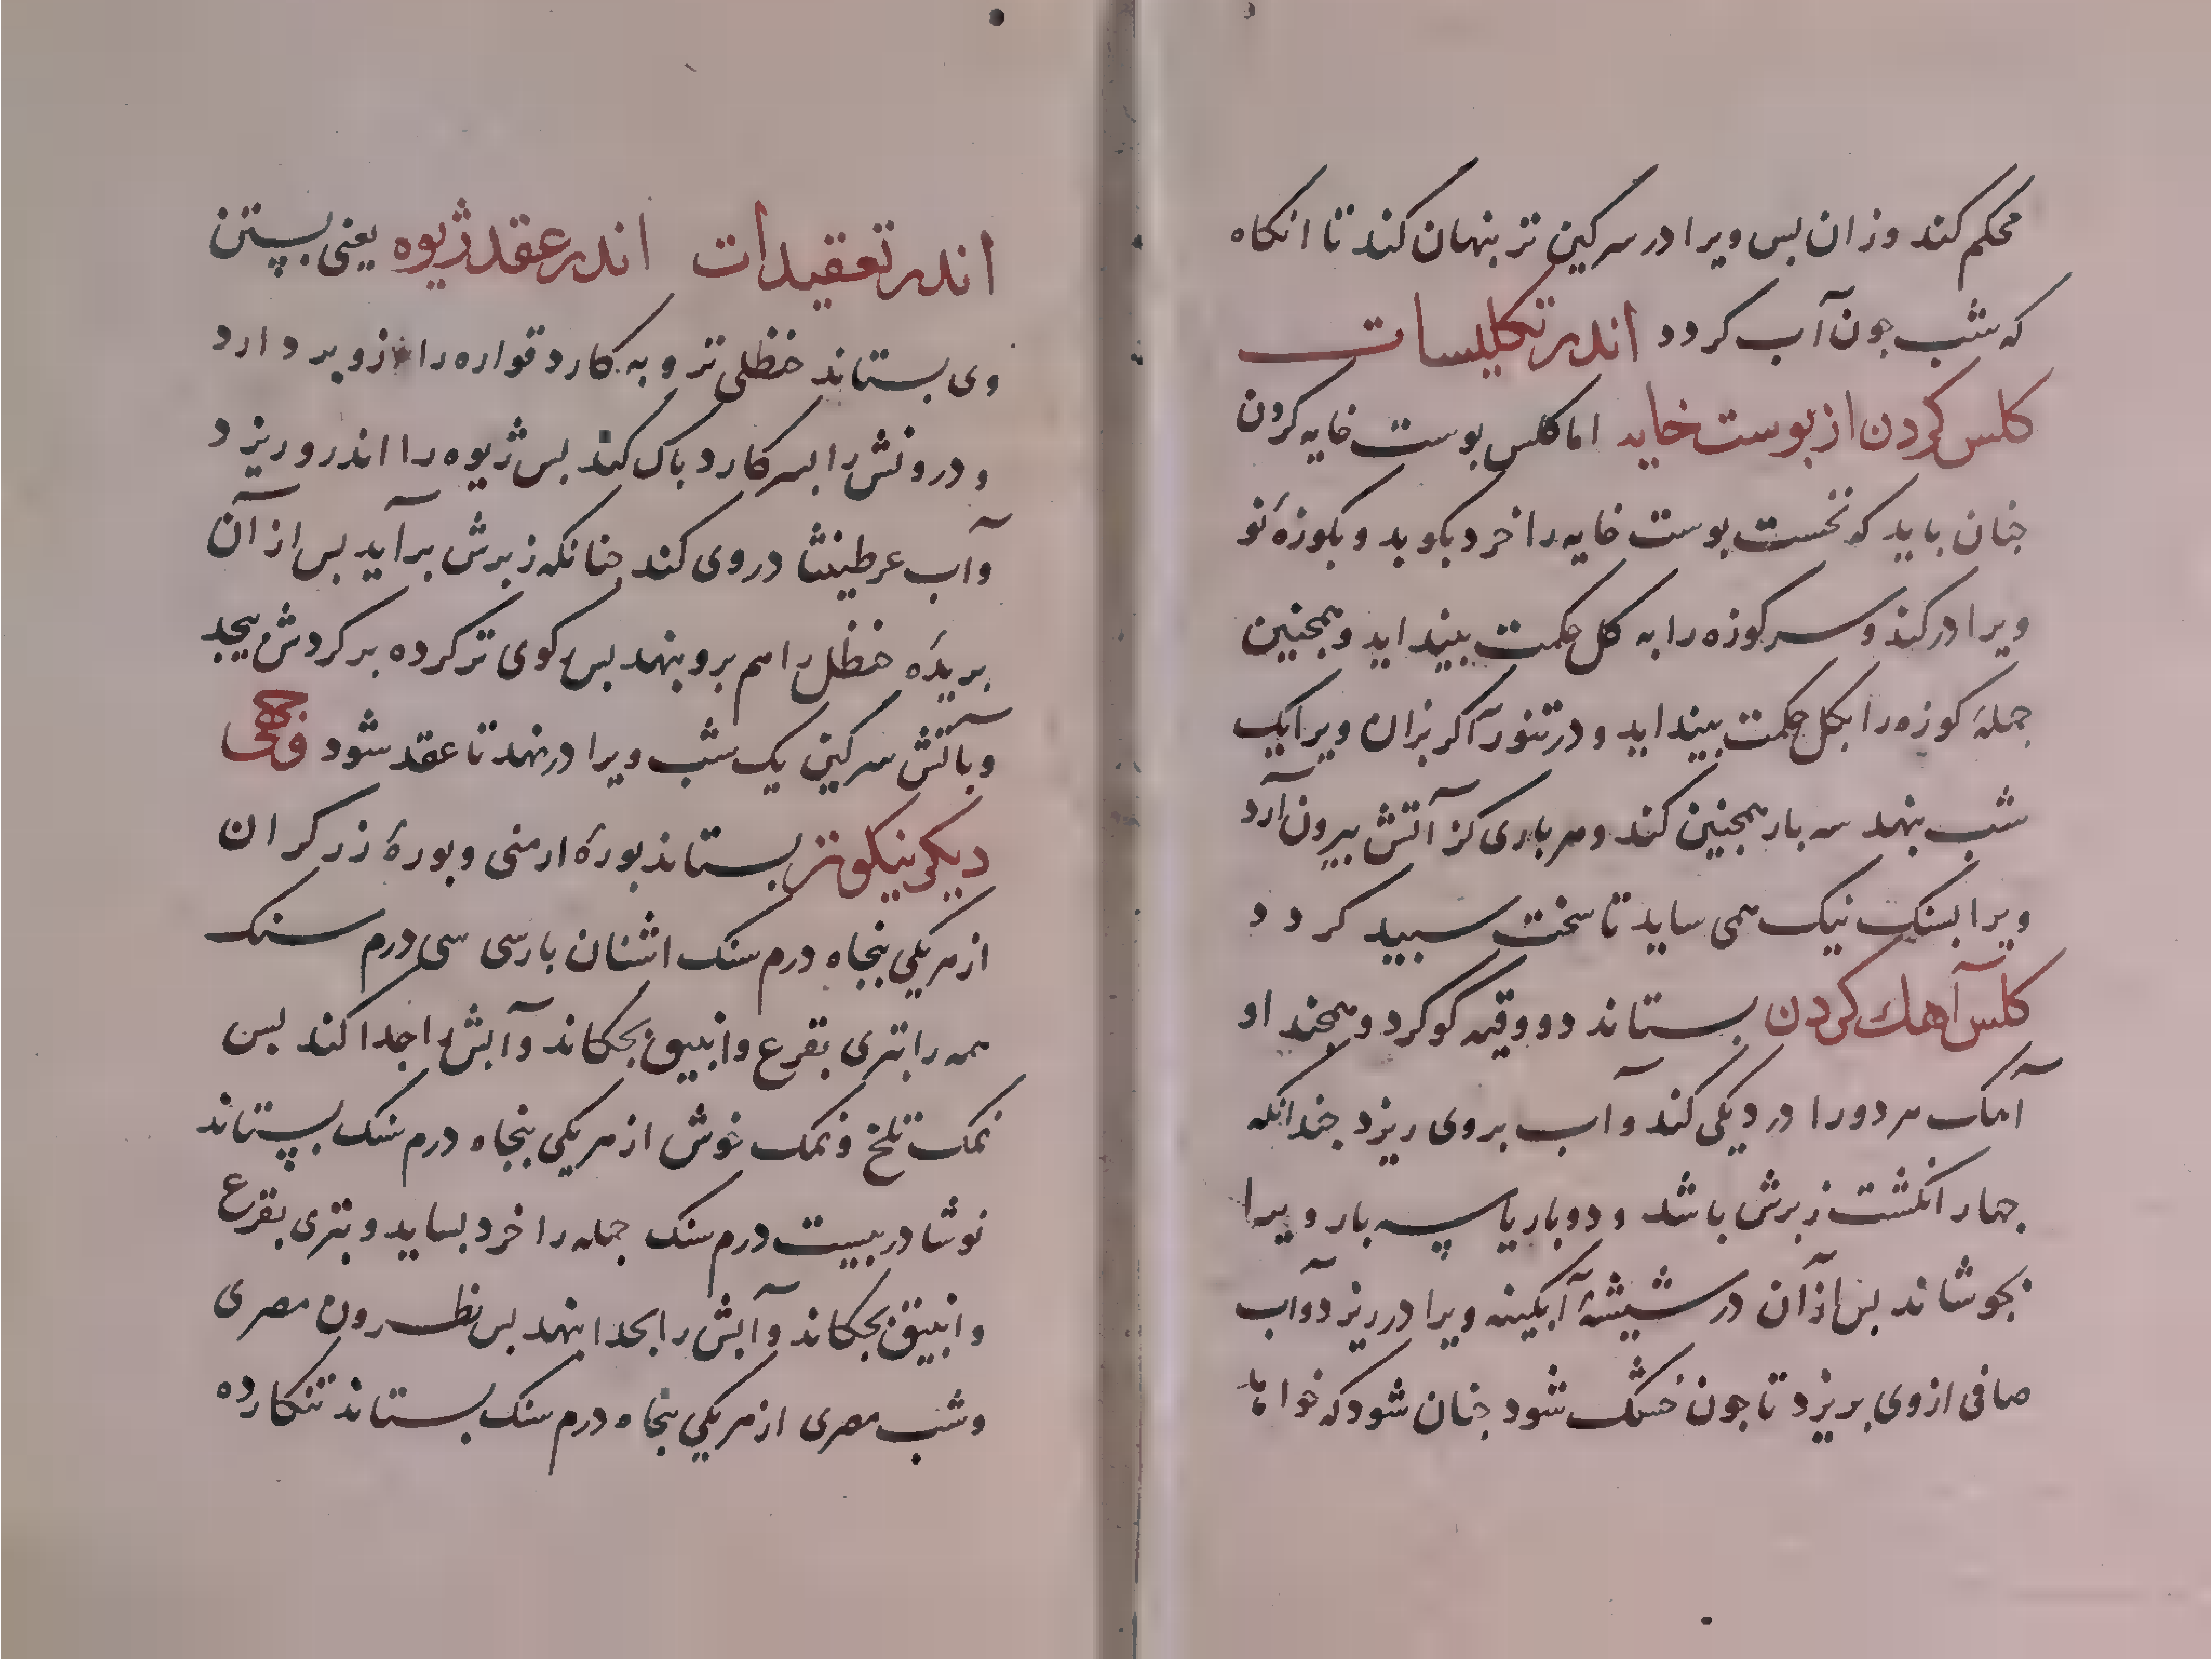 محکم کند وزان بس ویرا در سرکین تر بنهان کند تا انکاه
که شب جون آب کردد اندر تکلیسات
کلس کردن از بوست خایه اما کلس بوست خایه کردن
جنان باید که نخست بوست خایه را خرد بکوبد و بکوزهٔ نو
ویرا درکند و سر کوزه را به کل حکمت بینداید و همجنین
جملهٔ کوزه را بکل حکمت بینداید و در تنور آکر بزان ویرا یک
شب بنهد سه بار همجنین کند و هر باری کز آتش بیرون آرد
ویرا بسنک نیک همی ساید تا سخت سبید کردد
کلس آهک کردن بستاند دو وقیه کوکرد و همجند او
آهک هر دو را در دیکی کند و آب بروی ریزد جندانکه
جهار انکشت زبرش باشد و دو بار یا سه بار ویرا
بجوشاند بس از آن در شیشهٔ آبکینه ویرا در ریزد و آب
صافی از وی بریزد تا جون خشک شود جنان شود که خواهد
اندر تعقیدات اندر عقد ژیوه یعنی بستن
وی بستاند حنظلی تر و به کارد قواره را ازو بر دارد
و درونش را بسر کارد باک کند بس ژیوه را اندرو ریزد
و آب عرطنیثا در وی کند جنانکه زبرش برآید بس از آن
بریدهٔ حنظل را هم برو بنهد بس رکوی تر کرده بر کردش بیجد
و بآتش سرکین یک شب ویرا درنهد تا عقد شود
دیکر نیکوتر بستاند بورهٔ ارمنی و بورهٔ زرکران
از هر یکی بنجاه درم سنک اشنان بارسی سی درم سنک
همه را بتری بقرع و انبیق بجکاند و آبش را جدا کند بس
نمک تلخ و نمک خوش از هر یکی بنجاه درم سنک بستاند
نوشادر بیست درم سنک جمله را خرد بساید و بتری بقرع
و انبیق بجکاند و آبش را بجدا بنهد بس نطرون مصری
و شب مصری از هر یکی بنجاه درم سنک بستاند تنکار ده